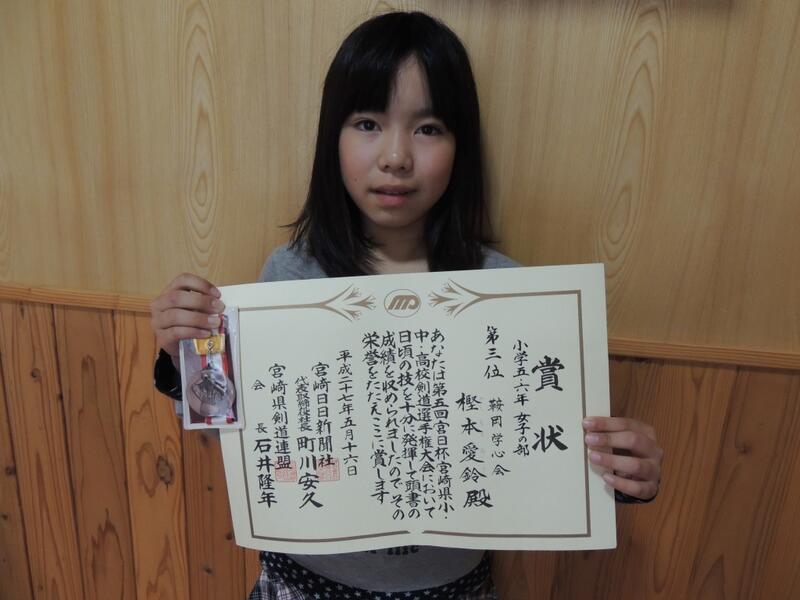 賞状
小学五・六年 女子の部
第三位 鞍岡学心会
樫本愛鈴殿
あなたは第五回宮日杯宮崎県小・
中・高校剣道選手権大会において
日頃の技を十分に発揮して頭書の
成績を収められましたので その
栄誉をたたえここに賞します
平成二十七年五月十六日
宮崎日日新聞社
代表取締役社長 町川安久
宮崎県剣道連盟
会長 石井隆年